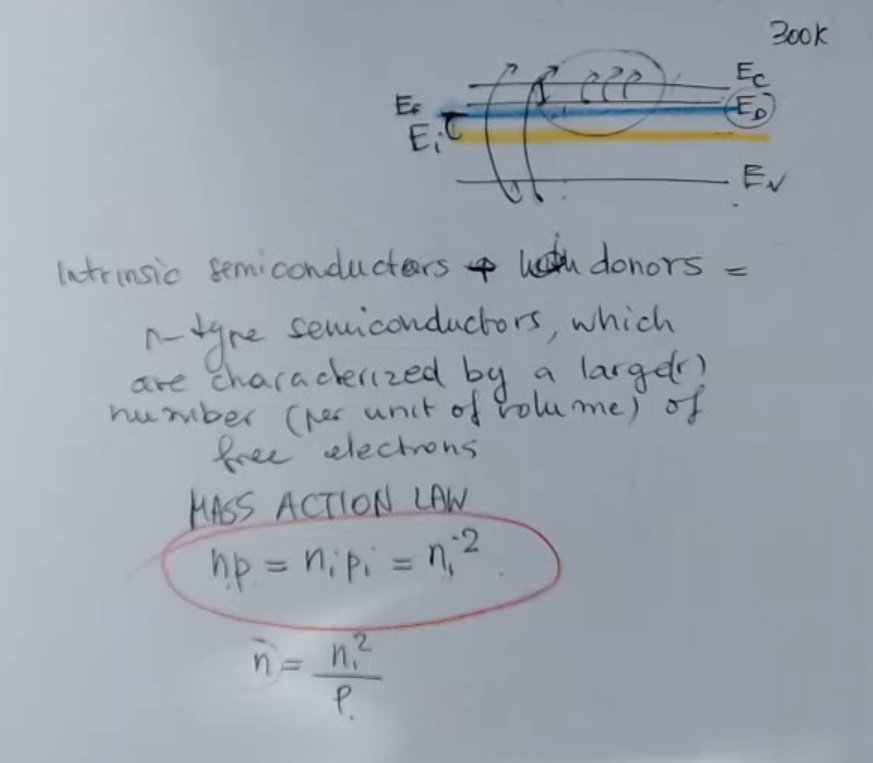 300K
Ec
EF
ED
Ei
Ev
Intrinsic semiconductors + donors =
n-type semiconductors, which
are characterized by a large(r)
number (per unit of volume) of
free electrons
MASS ACTION LAW
np = nipi = ni²
n = ni²/p